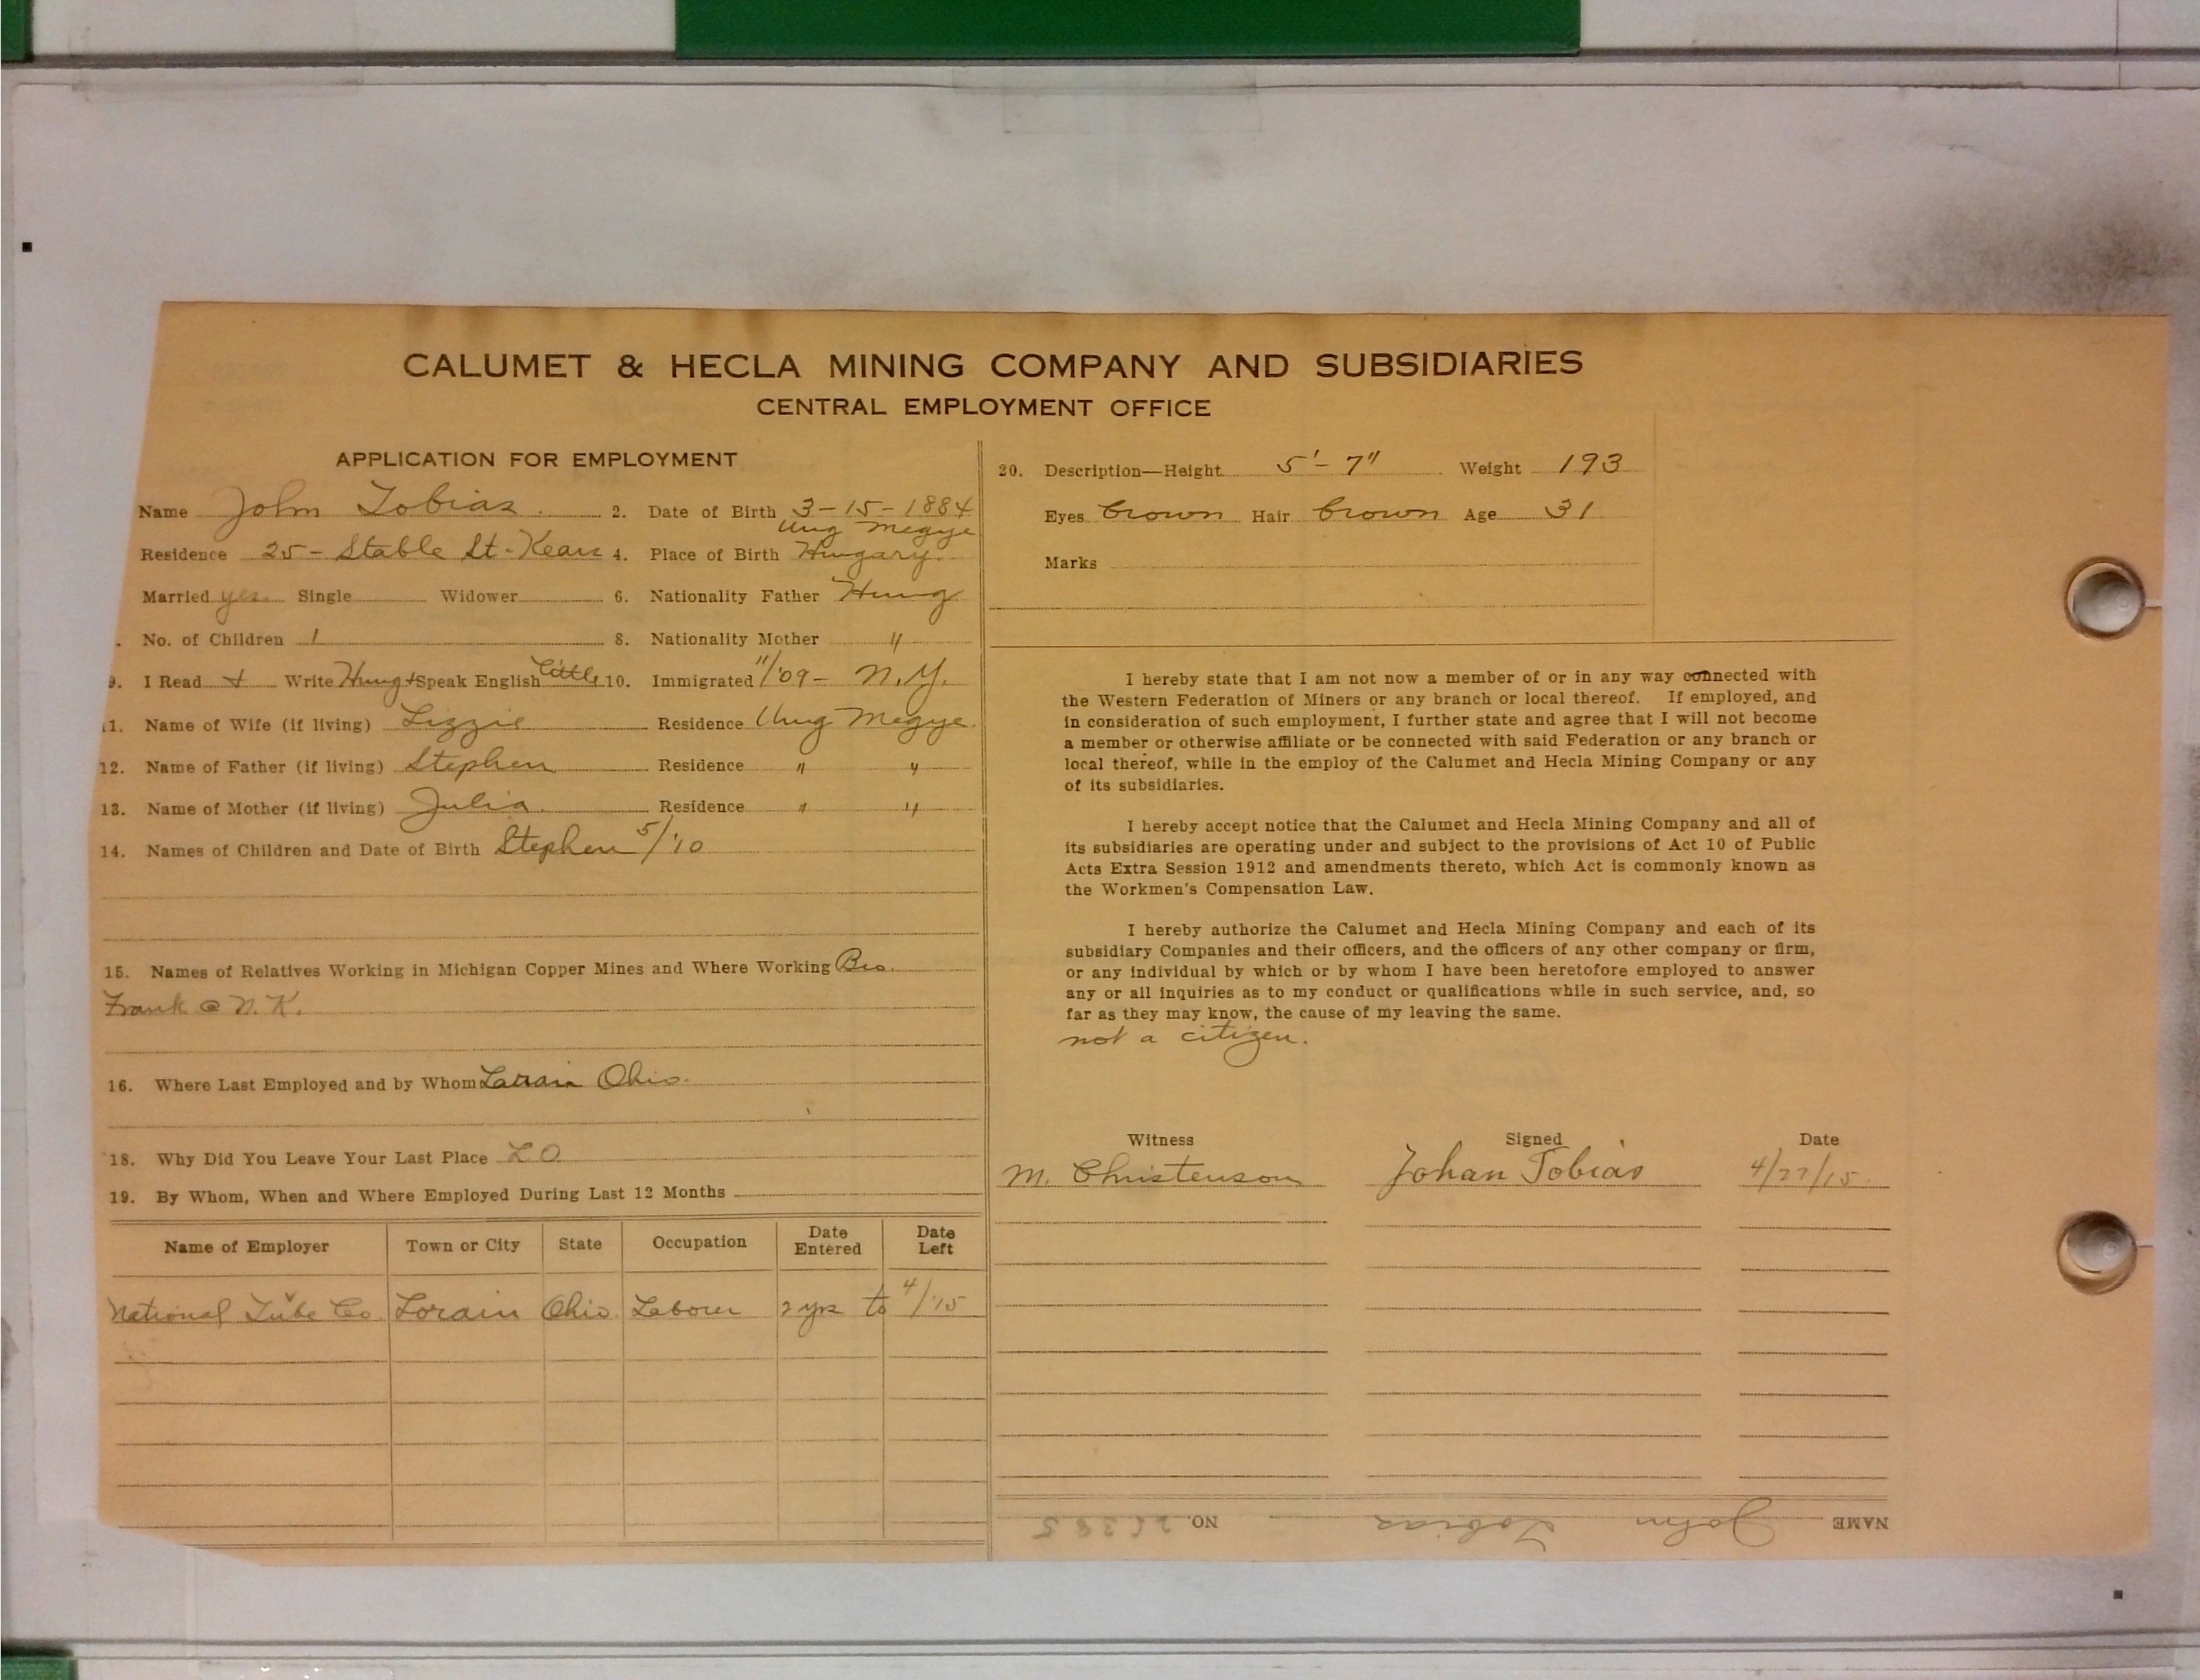 CALUMET & HECLA MINING COMPANY AND SUBSIDIARIES
CENTRAL EMPLOYMENT OFFICE
APPLICATION FOR EMPLOYMENT
Name John Tobias. 2. Date of Birth 3-15-1884
Ung Megye
Residence 25- Stable St. Kears 4. Place of Birth Hungary.
Married yes. Single Widower 6. Nationality Father Hung
. No. of Children 1 8. Nationality Mother "
9. I Read + Write Hung + Speak English little 10. Immigrated 11/'09 - N.Y.
11. Name of Wife (if living) Lizzie Residence Ung Megye.
12. Name of Father (if living) Stephen Residence " "
13. Name of Mother (if living) Julia. Residence " "
14. Names of Children and Date of Birth Stephen 5/'10
15. Names of Relatives Working in Michigan Copper Mines and Where Working Bro.
Frank @ N. K.
16. Where Last Employed and by Whom Lorain Ohio.
18. Why Did You Leave Your Last Place L O
19. By Whom, When and Where Employed During Last 12 Months
Name of Employer Town or City State Occupation Date Entered Date Left
National Tube Co Lorain Ohio. Laborer 2 yrs to 4/'15
20. Description—Height 5'-7" Weight 193
Eyes brown Hair brown Age 31
Marks
I hereby state that I am not now a member of or in any way connected with
the Western Federation of Miners or any branch or local thereof. If employed, and
in consideration of such employment, I further state and agree that I will not become
a member or otherwise affiliate or be connected with said Federation or any branch or
local thereof, while in the employ of the Calumet and Hecla Mining Company or any
of its subsidiaries.
I hereby accept notice that the Calumet and Hecla Mining Company and all of
its subsidiaries are operating under and subject to the provisions of Act 10 of Public
Acts Extra Session 1912 and amendments thereto, which Act is commonly known as
the Workmen's Compensation Law.
I hereby authorize the Calumet and Hecla Mining Company and each of its
subsidiary Companies and their officers, and the officers of any other company or firm,
or any individual by which or by whom I have been heretofore employed to answer
any or all inquiries as to my conduct or qualifications while in such service, and, so
far as they may know, the cause of my leaving the same.
not a citizen.
Witness Signed Date
M. Christenson Johan Tobiás 4/27/15.
NAME John Tobias NO.